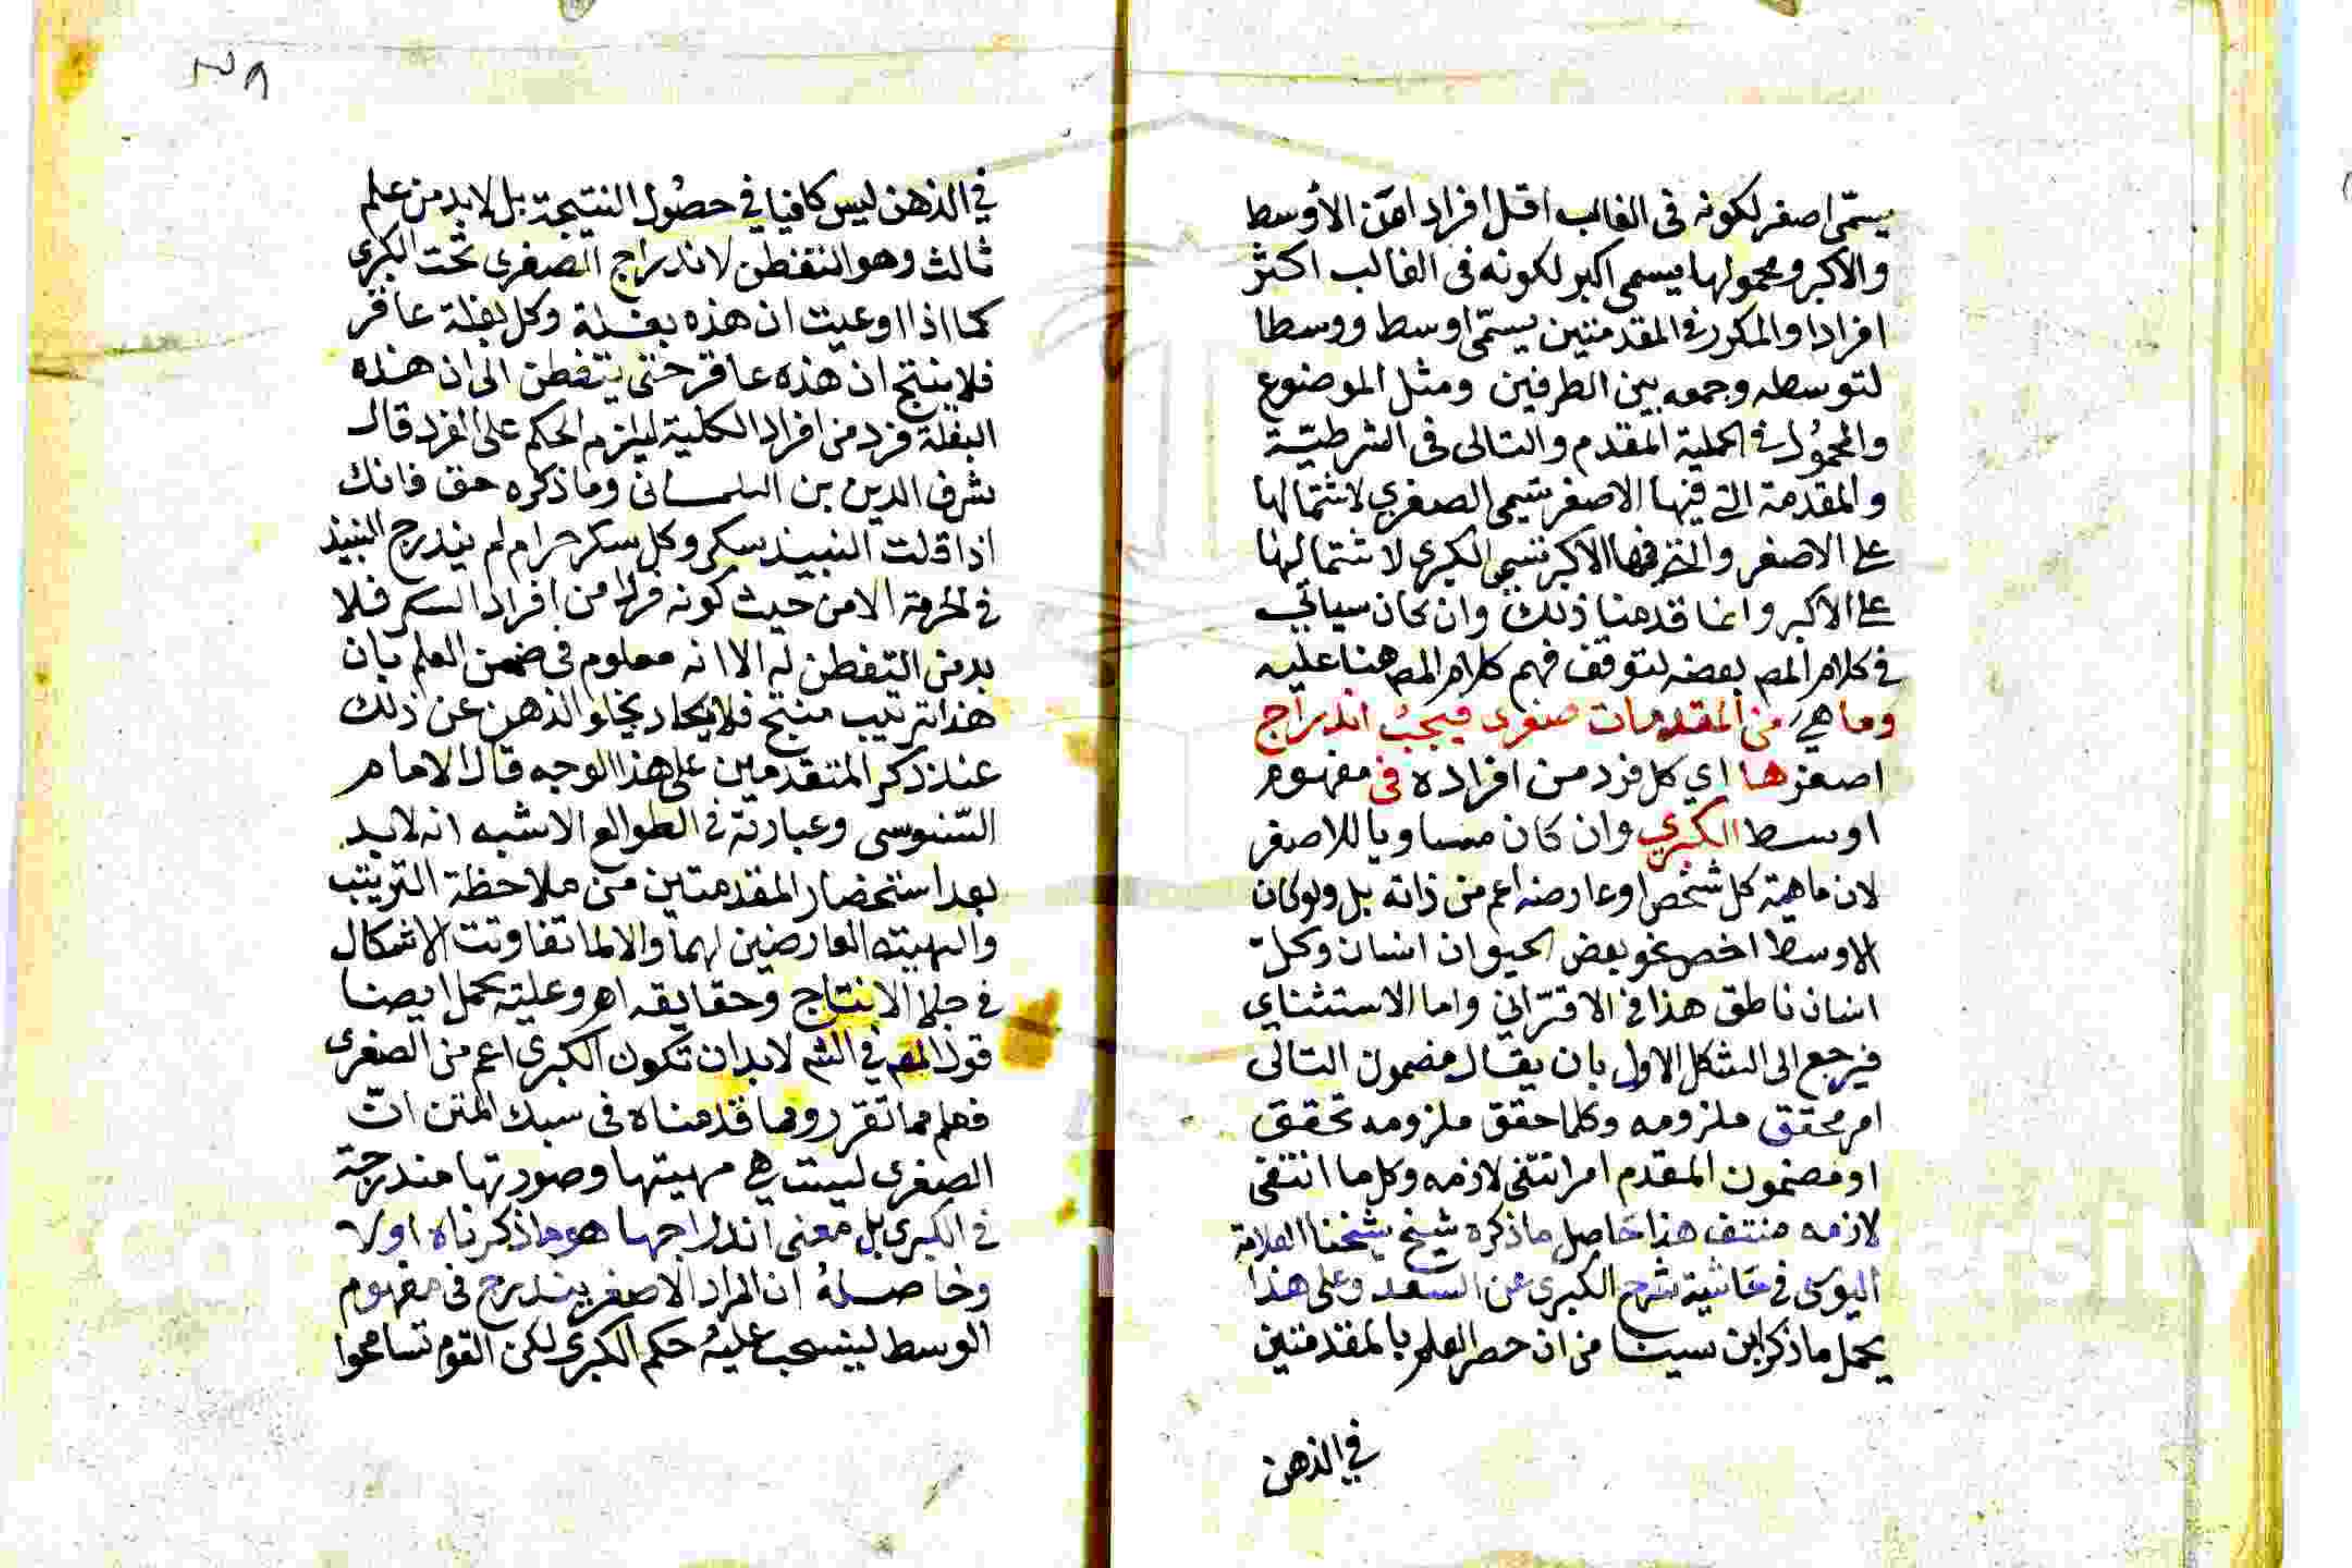 يسمّى اصغر لكونه فى الغالب اقل افرادا من الأوسط
والاكبر ومحمولها يسمى اكبر لكونه فى الغالب اكثر
افرادا والمكرر في المقدمتين يسمّى اوسط ووسطا
لتوسطه وجمعه بين الطرفين ومثل الموضوع
والمحمُول في الحملية المقدم والتالى فى الشرطيّة
والمقدمة التي فيها الاصغر تسمى الصغرى لاشتمالها
على الاصغر والتي فيها الاكبر تسمى الكبرى لاشتمالها
على الاكبر وانما قدمنا ذلك وان كان سياتي
في كلام المص بعضه لتوقف فهم كلام المص هنا عليه
وما هي من المقدمات صغرى فيجبُ اندراج
اصغرها اي كل فرد من افراده فى مفهوم
اوسط الكبرى وان كان مساويا للاصغر
لان ماهية كل شخص او عارضه اعم من ذاته بل ولو كان
الاوسط اخص نحو بعض الحيوان انسان وكلّ
انسان ناطق هذا في الاقتراني واما الاستثناي
فيرجع الى الشكل الاول بان يقال مضمون التالى
امر محقق ملزومه وكلما حقق ملزومه تحقق
او مضمون المقدم امر انتفى لازمه وكل ما انتفى
لازمه منتف هذا حاصل ما ذكره شيخ شيخنا العلامة
اليوسى في حاشية شرح الكبرى عن السعد وعلى هذا
يحمل ما ذكر ابن سينا من ان حصر العلم بالمقدمتين
في الذهن
٢٥٨
في الذهن ليس كافيا في حصُول النتيجة بل لابد من علم
ثالث وهو التفطن لاندراج الصغرى تحت الكبرى
كما اذا اوعيت ان هذه بغلة وكل بغلة عاقر
فلا ينتج ان هذه عاقر حتى يتفطن الى ان هذه
البغلة فرد من افراد الكلية ليلزم الحكم على الفرد قال
شرف الدين بن التلمسانى وما ذكره حق فانك
اذا قلت النبيذ مسكر وكل مسكر حرام لم يندرج النبيذ
في الحرمة الا من حيث كونه فردا من افراد المسكر فلا
بد من التفطن له الا انه معلوم فى ضمن العلم بان
هذا ترتيب منتج فلا يكاد يخلو الذهن عن ذلك
عند ذكر المتقدمين على هذا الوجه قال الامام
السّنوسى وعبارته في الطوالع الاشبه انه لابد
بعد استحضار المقدمتين من ملاحظة الترتيب
والهيئته العارضين لهما والا لما تفاوتت الاشكال
في جلاء الانتاج وحقايقه اه وعليه يحمل ايضا
قول المص في الشم لابد ان تكون الكبرى اعم من الصغرى
فعلم مما تقرر ومما قدمناه فى سبك المتن انّ
الصغرى ليست هي مهيتها وصورتها مندرجة
في الكبرى بل معنى اندراجها هو ما ذكرناه اولا
وحاصلهُ ان المراد الاصغر يندرج فى مفهوم
الوسط لينسحب عليهُ حكم الكبرى لكن القوم تسامحوا